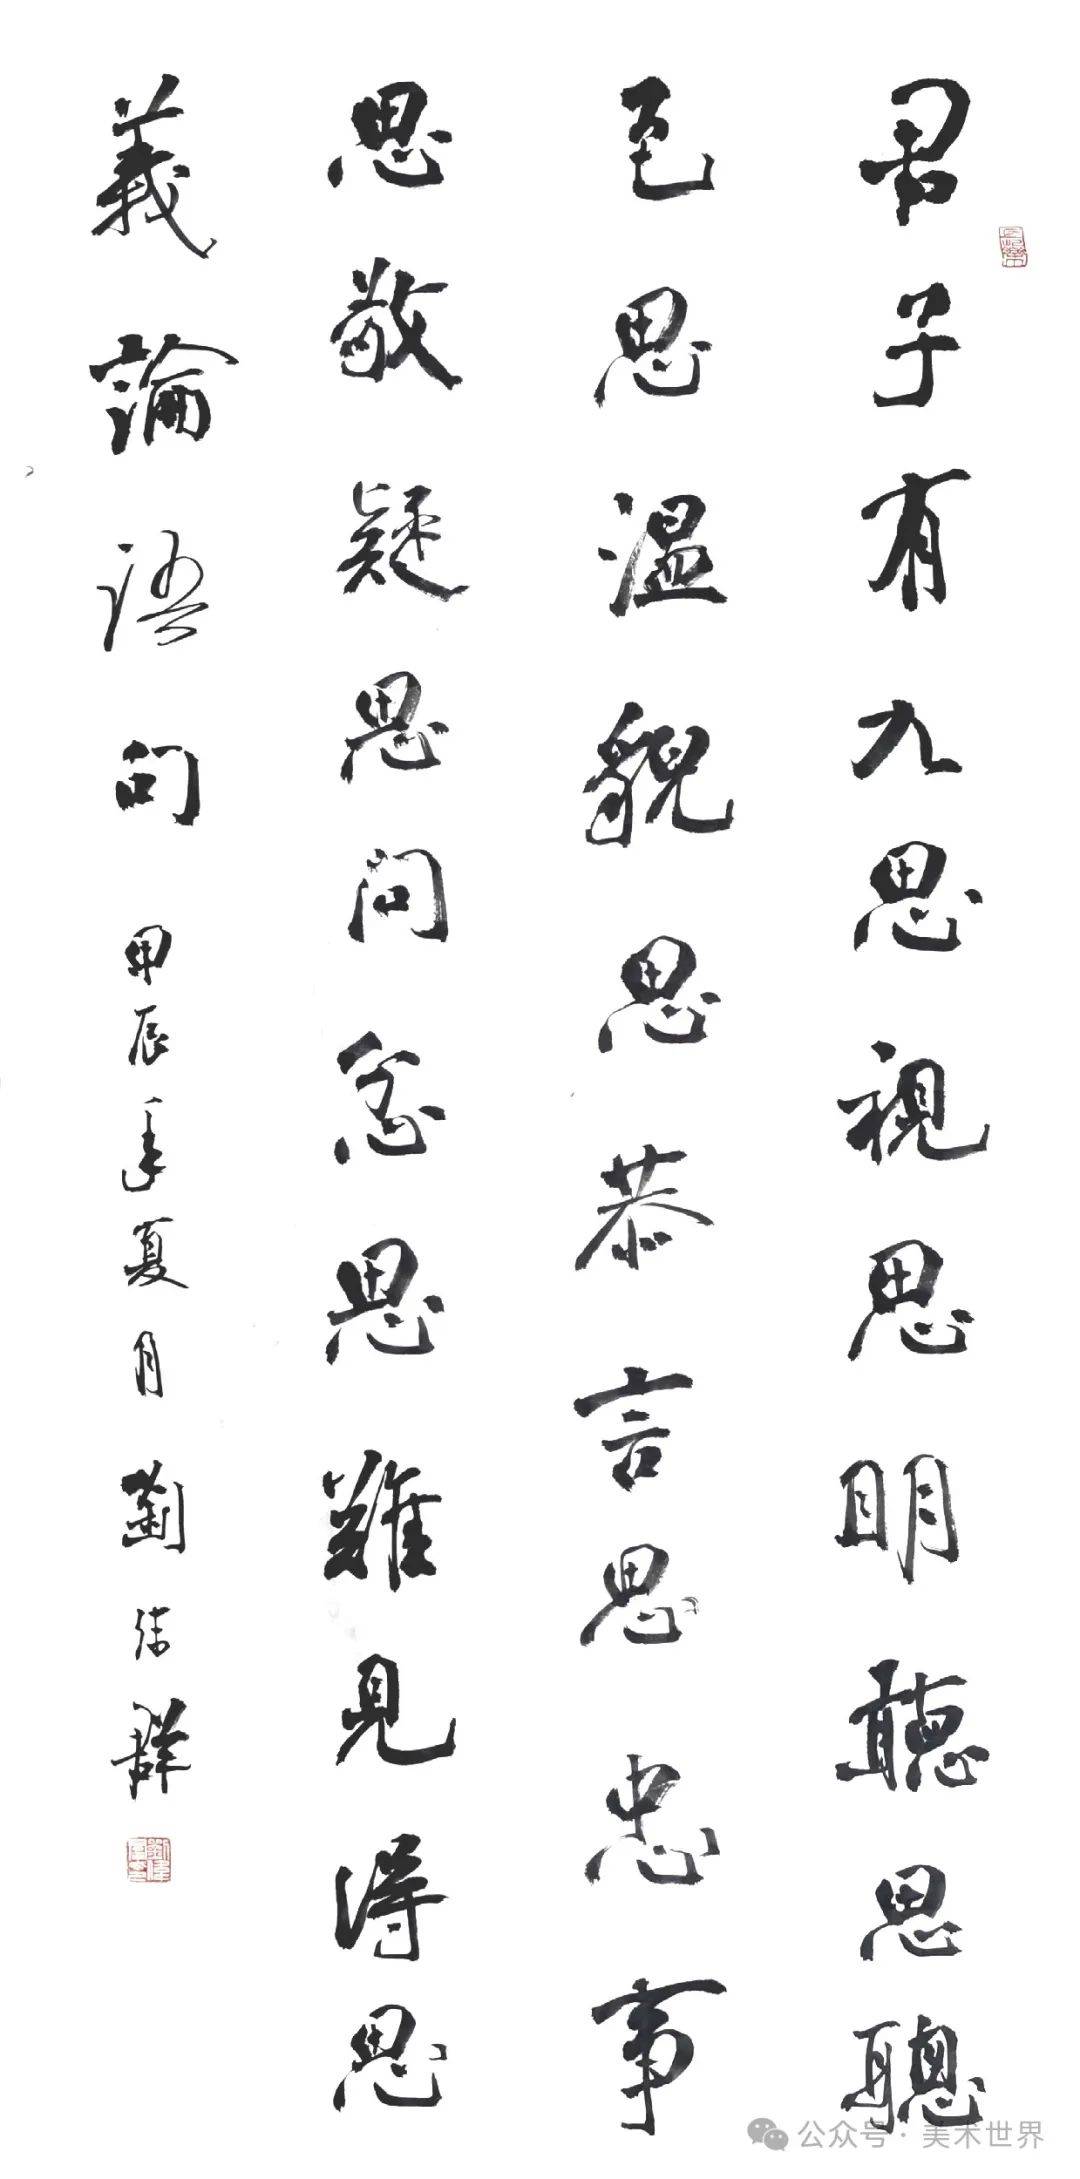 君子有九思視思明聽思聰
色思溫貌思恭言思忠事
思敬疑思問忿思難見得思
義論語句
甲辰年夏月劉偉群
公众号·美术世界